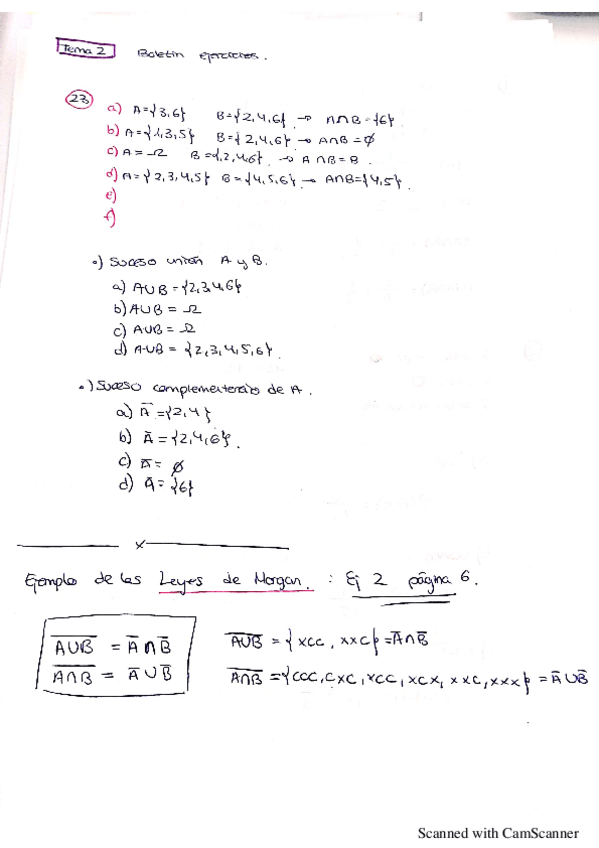 Tema 2 Boletín ejercicios.
23
a) A={3,6} B={2,4,6} → A∩B={6}
b) A={1,3,5} B={2,4,6} → A∩B=∅
c) A=Ω B={2,4,6} → A∩B=B.
d) A={2,3,4,5} B={4,5,6} → A∩B={4,5}.
e)
f)
•) Suceso unión A y B.
a) A∪B={2,3,4,6}
b) A∪B = Ω
c) A∪B = Ω
d) A∪B = {2,3,4,5,6}.
•) Suceso complementario de A.
a) A̅={2,4}
b) A̅={2,4,6}.
c) A̅= ∅
d) A̅={6}
x
Ejemplo de las Leyes de Morgan. : Ej 2 página 6.
A̅∪̅B̅ = A̅∩B̅ A̅∪̅B̅ = {xcc, xxc}=A̅∩B̅
A̅∩̅B̅ = A̅∪B̅ A̅∩̅B̅ ={ccc, cxc, xcc, xcx, xxc, xxx} = A̅∪B̅
Scanned with CamScanner